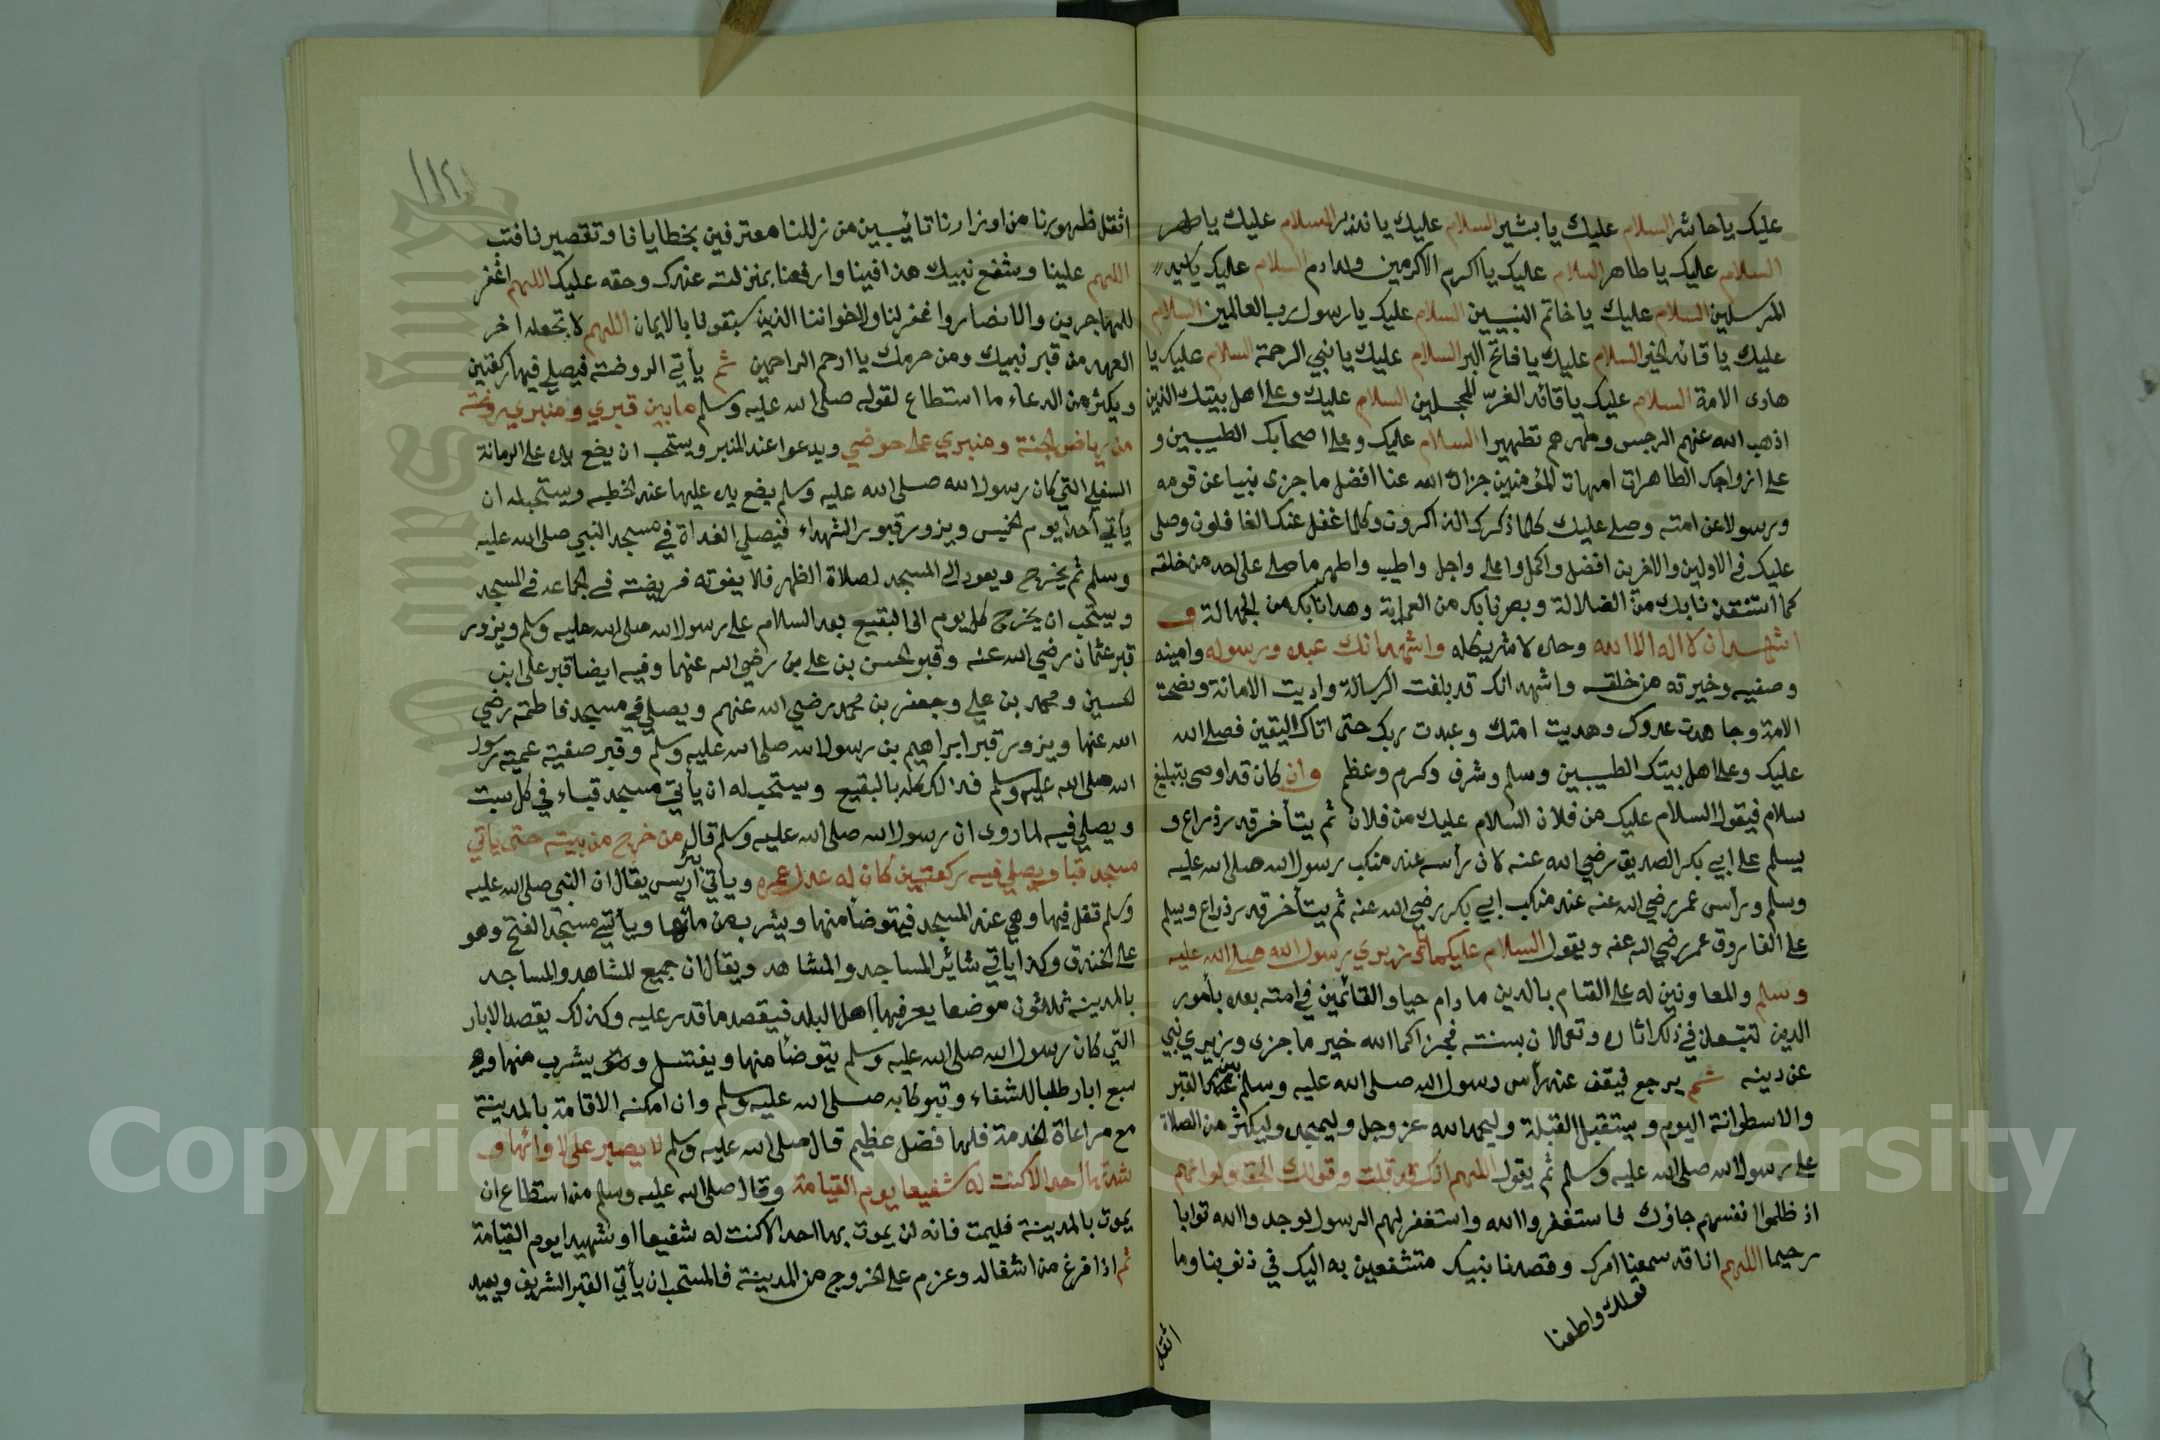 عليك يا حاشر السلام عليك يا بشير السلام عليك يا نذير السلام عليك يا طهر
السلام عليك يا طاهر السلام عليك يا اكرم الاكرمين ولد ادم السلام عليك يا سيد
المرسلين السلام عليك يا خاتم النبيين السلام عليك يا رسول رب العالمين السلام
عليك يا قائد الخير السلام عليك يا فاتح البر السلام عليك يا نبي الرحمة السلام عليك يا
هادى الامة السلام عليك يا قائد الغرّ المحجلين السلام عليك وعلى اهل بيتك الذين
اذهب الله عنهم الرجس وطهرهم تطهيرا السلام عليك وعلى اصحابك الطيبين و
على ازواجك الطاهرات امهات المؤمنين جزاك الله عنا افضل ما جزى نبيا عن قومه
ورسولا عن امته وصلى عليك كلما ذكرك الذاكرون وكلما غفل عنك الغافلون وصلى
عليك في الاولين والاخرين افضل واكمل واعلى واجل واطيب واطهر ما صلى على احد من خلقه
كما استنقذنا بك من الضلالة وبصرنا بك من العماية وهدانا بك من الجهالة و
اشهد ان لا اله الا الله وحده لا شريك له واشهد انك عبده ورسوله وامينه
وصفيه وخيرته من خلقه واشهد انك قد بلغت الرسالة واديت الامانة ونصحت
الامة وجاهدت عدوك وهديت امتك وعبدت ربك حتى اتاك اليقين فصلى الله
عليك وعلى اهل بيتك الطيبين وسلم وشرف وكرم وعظم وان كان قد اوصى بتبليغ
سلام فيقول السلام عليك من فلان السلام عليك من فلان ثم يتأخر قدر ذراع و
يسلم على ابي بكر الصديق رضي الله عنه لان رأسه عند منكب رسول الله صلى الله عليه
وسلم ورأس عمر رضي الله عنه عند منكب ابي بكر رضي الله عنه ثم يتأخر قدر ذراع ويسلم
على الفاروق عمر رضي الله عنه ويقول السلام عليكما يا وزيري رسول الله صلى الله عليه
وسلم والمعاونين له على القيام بالدين ما دام حيا والقائمين في امته بعده بأمور
الدين تتبعان في ذلك اثاره وتعملان بسنته فجزاكما الله خير ما جزى وزيري نبي
عن دينه ثم يرجع فيقف عند رأس رسول الله صلى الله عليه وسلم بين القبر
والاسطوانة اليوم ويستقبل القبلة وليحمد الله عز وجل وليمجده وليكثر من الصلاة
على رسول الله صلى الله عليه وسلم ثم يقول اللهم انك قد قلت وقولك الحق ولو انهم
اذ ظلموا انفسهم جاؤك فاستغفروا الله واستغفر لهم الرسول لوجدوا الله توابا
رحيما اللهم انا قد سمعنا امرك وقصدنا نبيك متشفعين به اليك في ذنوبنا وما
واطعنا
اثقل
١١٢
اثقل ظهورنا من اوزارنا تائبين من زللنا معترفين بخطايانا وتقصيرنا فتب
اللهم علينا وشفع نبيك هذا فينا وارفعنا بمنزلته عندك وحقه عليك اللهم اغفر
للمهاجرين والانصار واغفر لنا ولاخواننا الذين سبقونا بالايمان اللهم لا تجعله اخر
العهد من قبر نبيك ومن حرمك يا ارحم الراحمين ثم يأتي الروضة فيصلي فيها ركعتين
ويكثر من الدعاء ما استطاع لقوله صلى الله عليه وسلم ما بين قبري ومنبري روضة
من رياض الجنة ومنبري على حوضي ويدعوا عند المنبر ويستحب ان يضع يده على الرمانة
السفلى التي كان رسول الله صلى الله عليه وسلم يضع يده عليها عند الخطبه ويستحب له ان
يأتي أحدا يوم الخميس ويزور قبور الشهداء فيصلي الغداة في مسجد النبي صلى الله عليه
وسلم ثم يخرج ويعود الى المسجد لصلاة الظهر فلا يفوته فريضته في الجماعه في المسجد
ويستحب ان يخرج كل يوم الى البقيع بعد السلام على رسول الله صلى الله عليه وسلم ويزور
قبر عثمان رضي الله عنه وقبر الحسن بن علي رضي الله عنهما وفيه ايضا قبر على ابن
الحسين ومحمد بن علي وجعفر بن محمد رضي الله عنهم ويصلي في مسجد فاطمة رضي
الله عنها ويزور قبر ابراهيم بن رسول الله صلى الله عليه وسلم وقبر صفية عمة رسول
الله صلى الله عليه وسلم فذلك كله بالبقيع ويستحب له ان يأتي مسجد قباء في كل سبت
ويصلي فيه لما روى ان رسول الله صلى الله عليه وسلم قال من خرج من بيته حتى ياتي
مسجد قبا ويصلي فيه ركعتين كان له عدل عمره وياتي بئر اريس يقال ان النبي صلى الله عليه
وسلم تفل فيها وهي عند المسجد فيتوضأ منها ويشرب من مائها ويأتي مسجد الفتح وهو
على الخندق وكذا ياتي سائر المساجد والمشاهد ويقال ان جميع المشاهد والمساجد
بالمدينه ثلاثون موضعا يعرفها اهل البلد فيقصد ما قدر عليه وكذلك يقصد الابار
التي كان رسول الله صلى الله عليه وسلم يتوضأ منها ويغتسل ويشرب منها وهي
سبع ابار طلبا للشفاء وتبركا به صلى الله عليه وسلم وان امكنه الاقامة بالمدينة
مع مراعاة الحرمة فلها فضل عظيم قال صلى الله عليه وسلم لا يصبر على لاوائها و
شدتها احد الا كنت له شفيعا يوم القيامة وقال صلى الله عليه وسلم من استطاع ان
يموت بالمدينة فليمت فانه لن يموت بها احد الا كنت له شفيعا او شهيدا يوم القيامة
ثم اذا فرغ من اشغاله وعزم على الخروج من المدينة فالمستحب ان يأتي القبر الشريف ويعيد
Copyright © King Saud University